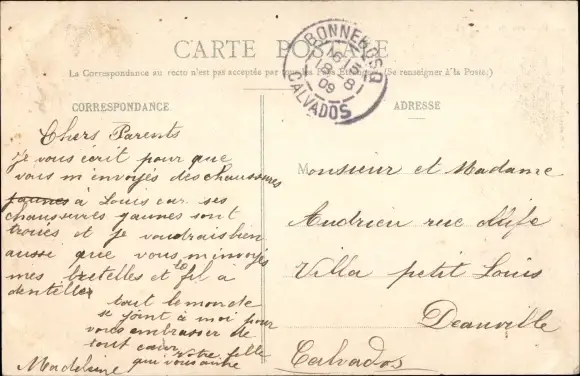 CARTE POSTALE
La Correspondance au recto n'est pas acceptée par tous les Pays Etrangers. (Se renseigner à la Poste.)
BONNEBOSQ
CALVADOS
09
CORRESPONDANCE
Chers Parents
je vous écrit pour que
vous m'envoyés des chaussures
jaunes à Louis car ses
chaussures jaunes sont
troués et je voudrais bien
aussi que vous m'envoyés
mes bretelles et fil a
dentelles
tout le monde
se joint à moi pour
vous embrasser de
tout cœur votre fille
qui vous aime
Madeleine
ADRESSE
Monsieur et Madame
Andrieu rue
Villa petit Louis
Deauville
Calvados